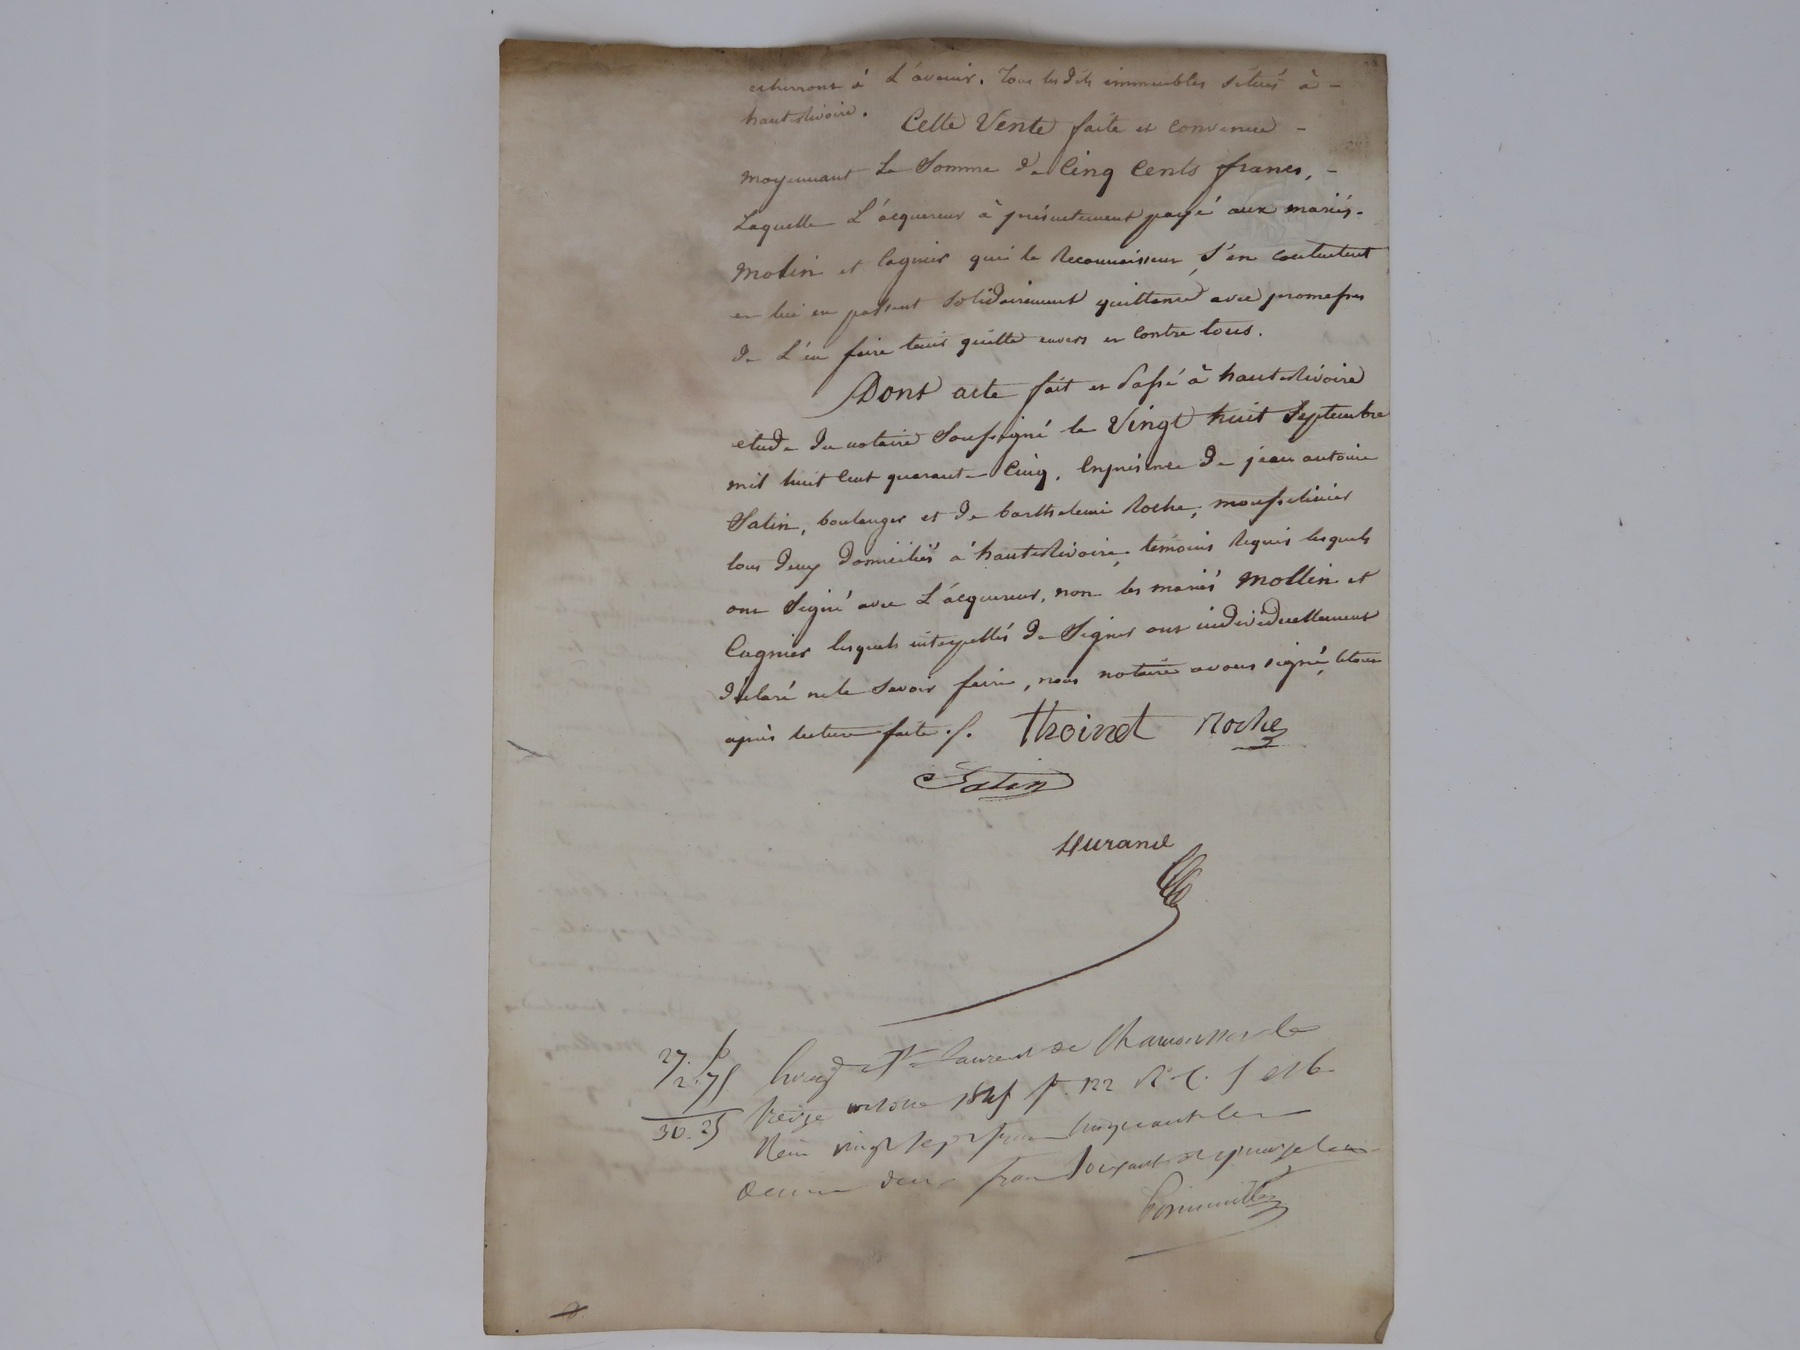 echerront à L'avenir. Tous les dits immeubles situés à -
hauterivoire.
Cette Vente faite et convenue -
moyennant La Somme de Cinq Cents francs, -
Laquelle L'acquereur à présentement payé aux mariés -
Molin et Cagnier qui le Reconnaissent, S'en contentent
et lui en passent Solidairement quittance avec promesses
de L'en faire tenir quitte envers et contre tous.
Dont acte fait et Passé à hauterivoire
etude du notaire Soussigné le Vingt huit Septembre
mil huit cent quarante Cinq, En présence de jean antoine
Satin, boulanger et de barthelemi Roche, mousselinier
tous deux domiciliés à hauterivoire, témoins Requis lesquels
ont Signé avec L'acquereur, non les mariés Mollin et
Cagnier lesquels interpellés de Signer ont individuellement
déclaré ne le Savoir faire, nous notaire avons signé, le tout
après lecture faite ./.
Thoinet Roche
Satin
Durand
27. 50 Enregé à St Laurent de Chamousset le
2. 75 treize octobre 1845 f. 122 Ro C. 5 et 6
30. 25 Reçu vingt sept francs cinquante c
decime deux francs soixante et quinze c